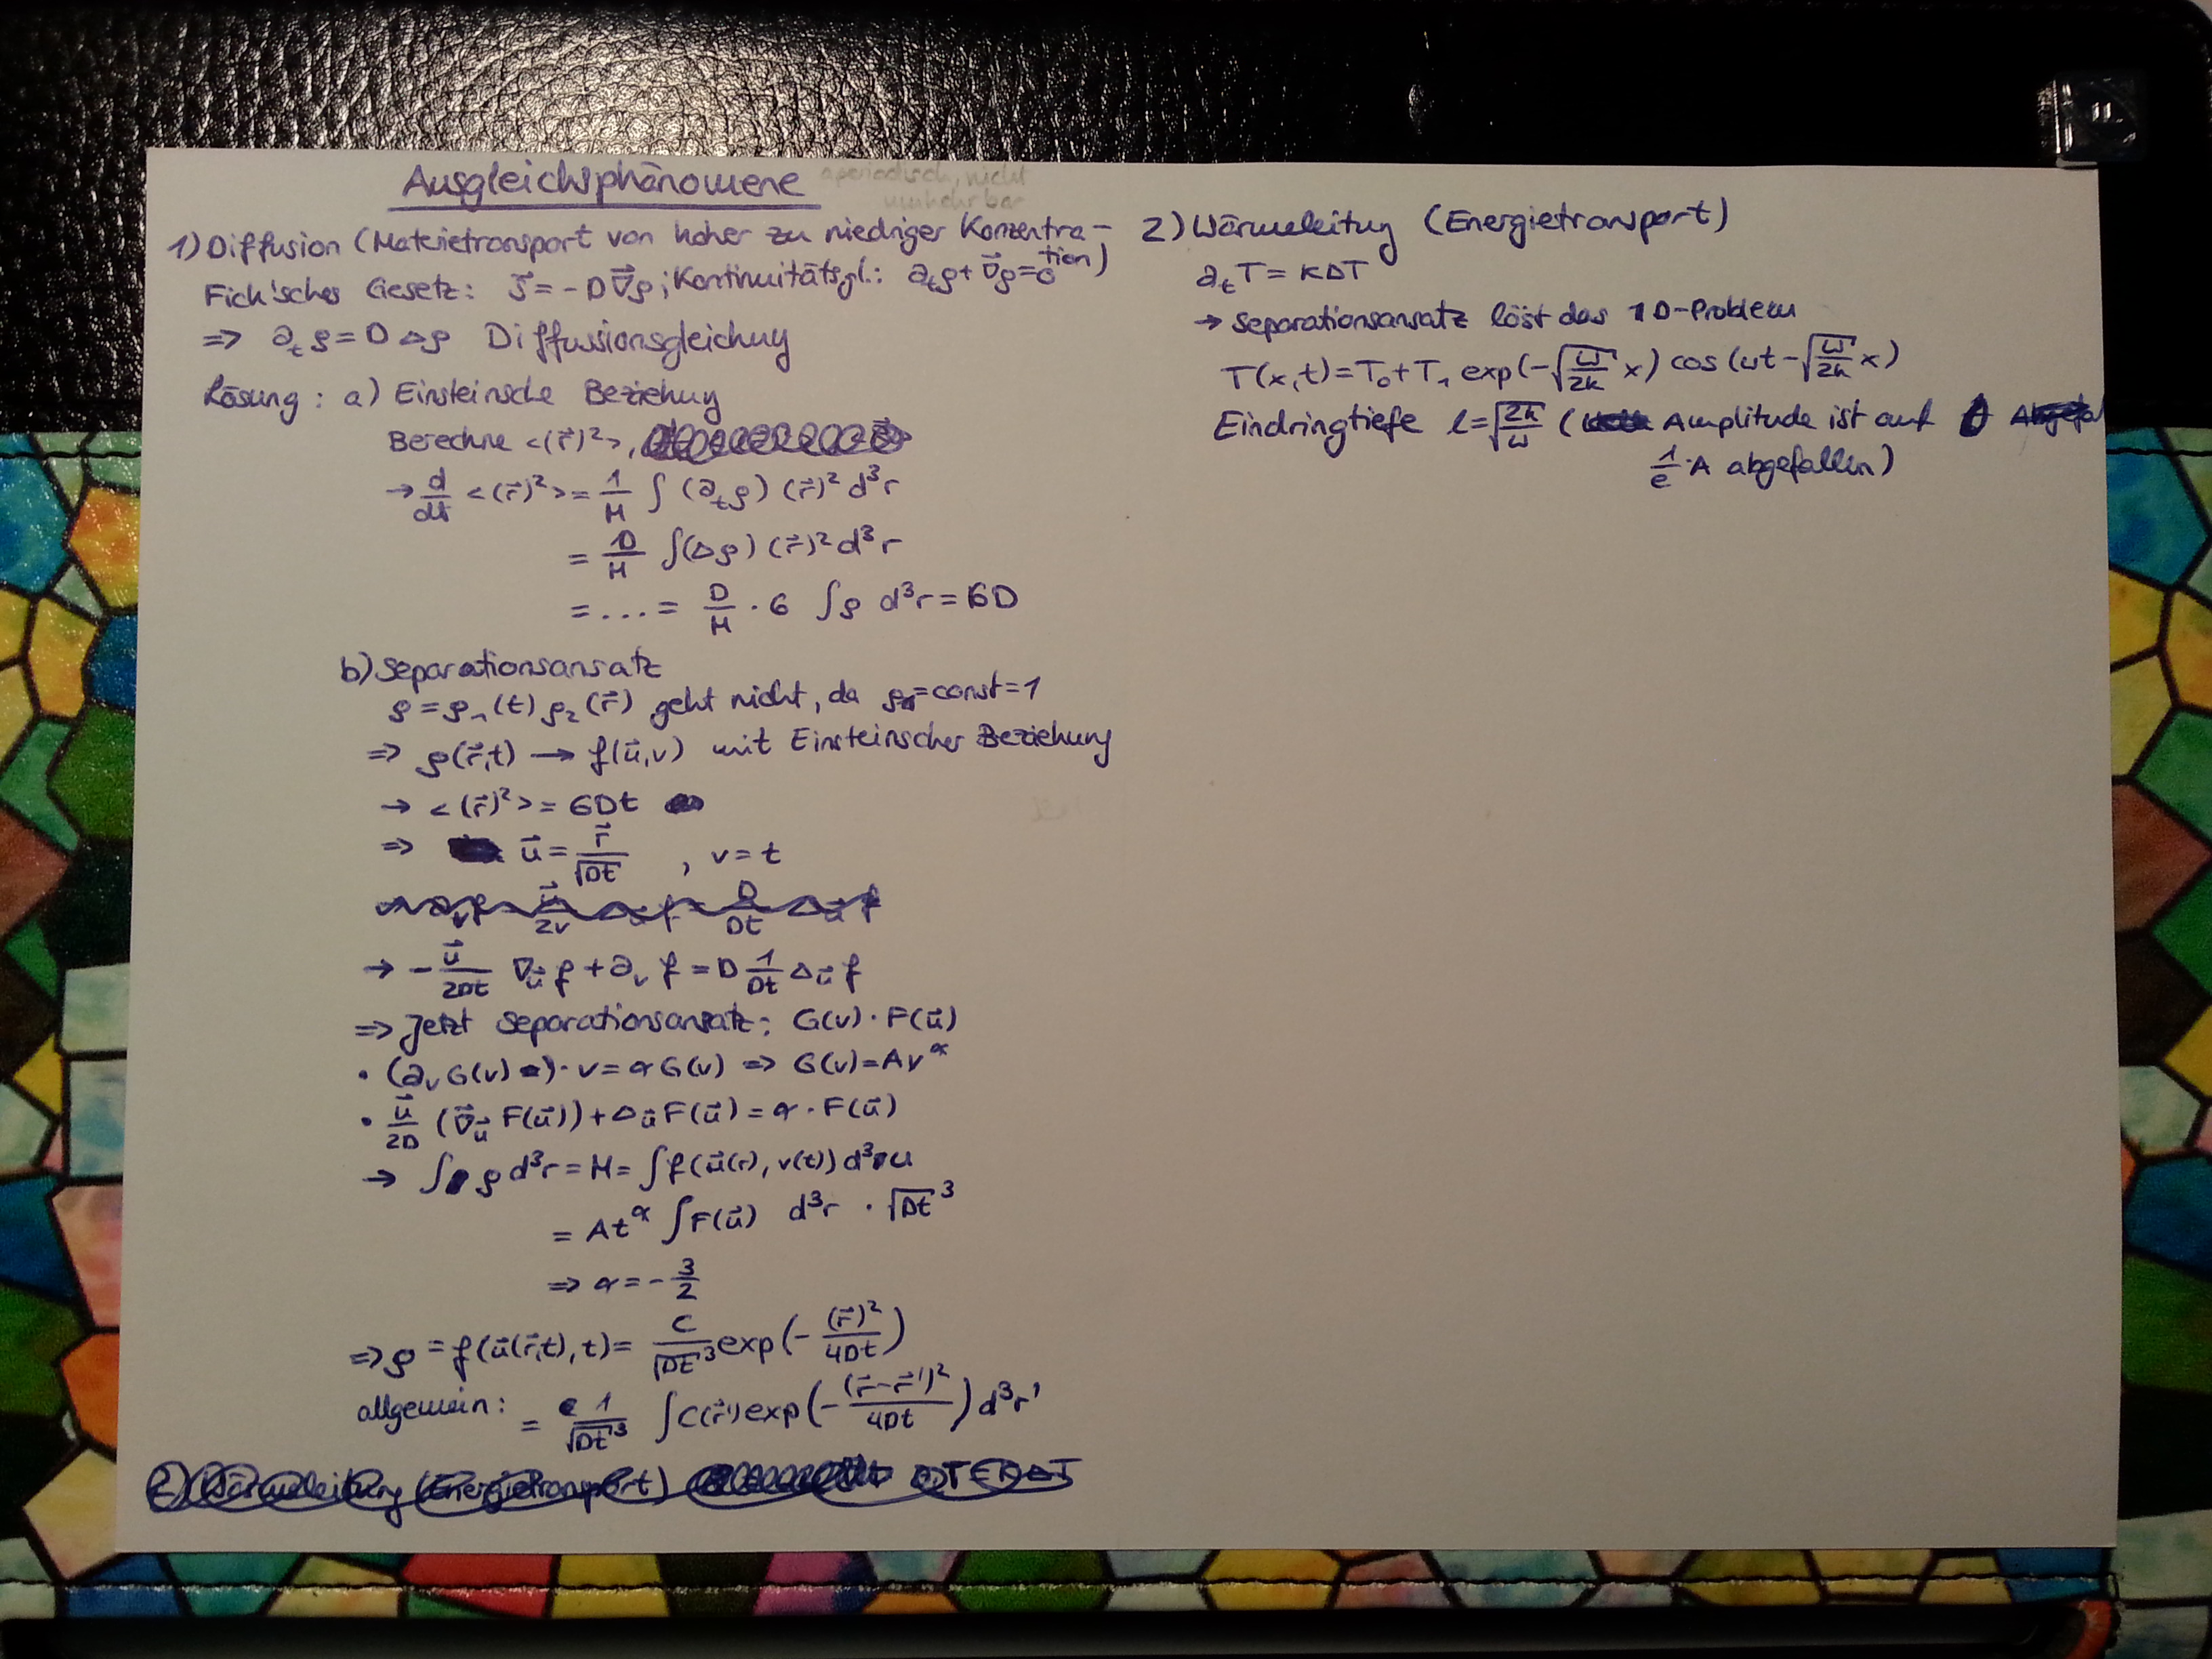 Ausgleichsphänomene
aperiodisch, nicht
umkehrbar
1) Diffusion (Materietransport von hoher zu niedriger Konzentra-
tion)
Fick'sches Gesetz: j⃗ = -D ∇⃗ρ ; Kontinuitätsgl.: ∂ₜρ + ∇⃗ρ = 0
⇒ ∂ₜρ = D Δρ Diffussionsgleichung
Lösung: a) Einsteinsche Beziehung
Berechne <(r⃗)²>,
→ d/dt <(r⃗)²> = 1/M ∫ (∂ₜρ) (r⃗)² d³r
= D/M ∫(Δρ) (r⃗)² d³r
= ... = D/M · 6 ∫ρ d³r = 6D
b) Separationsansatz
ρ = ρ₁(t) ρ₂(r⃗) geht nicht, da ρ = const = 1
⇒ ρ(r⃗,t) → f(u⃗,v) mit Einsteinscher Beziehung
→ <(r⃗)²> = 6Dt
⇒ u⃗ = r⃗/√Dt , v = t
→ -u⃗/2Dt ∇_u⃗ f + ∂ᵥ f = D 1/Dt Δ_u⃗ f
⇒ Jetzt Separationsansatz: G(v) · F(u⃗)
• (∂ᵥG(v)) · v = α G(v) ⇒ G(v) = A v^α
• u⃗/2D (∇⃗_u⃗ F(u⃗)) + Δ_u⃗ F(u⃗) = α · F(u⃗)
→ ∫ ρ d³r = M = ∫ f(u⃗(r), v(t)) d³u
= A t^α ∫ F(u⃗) d³r · √Dt³
⇒ α = -3/2
⇒ ρ = f(u⃗(r⃗,t), t) = C/√Dt³ exp(- (r⃗)²/4Dt)
allgemein: = 1/√Dt³ ∫ C(r⃗') exp(- (r⃗-r⃗')²/4Dt) d³r'
2) Wärmeleitung (Energietransport) ∂ₜT = KΔT
2) Wärmeleitung (Energietransport)
∂ₜT = KΔT
→ Separationsansatz löst das 1D-Problem
T(x,t) = T₀ + T₁ exp(-√(ω/2k) x) cos(ωt - √(ω/2k) x)
Eindringtiefe l = √(2k/ω) ( Amplitude ist auf
1/e · A abgefallen)